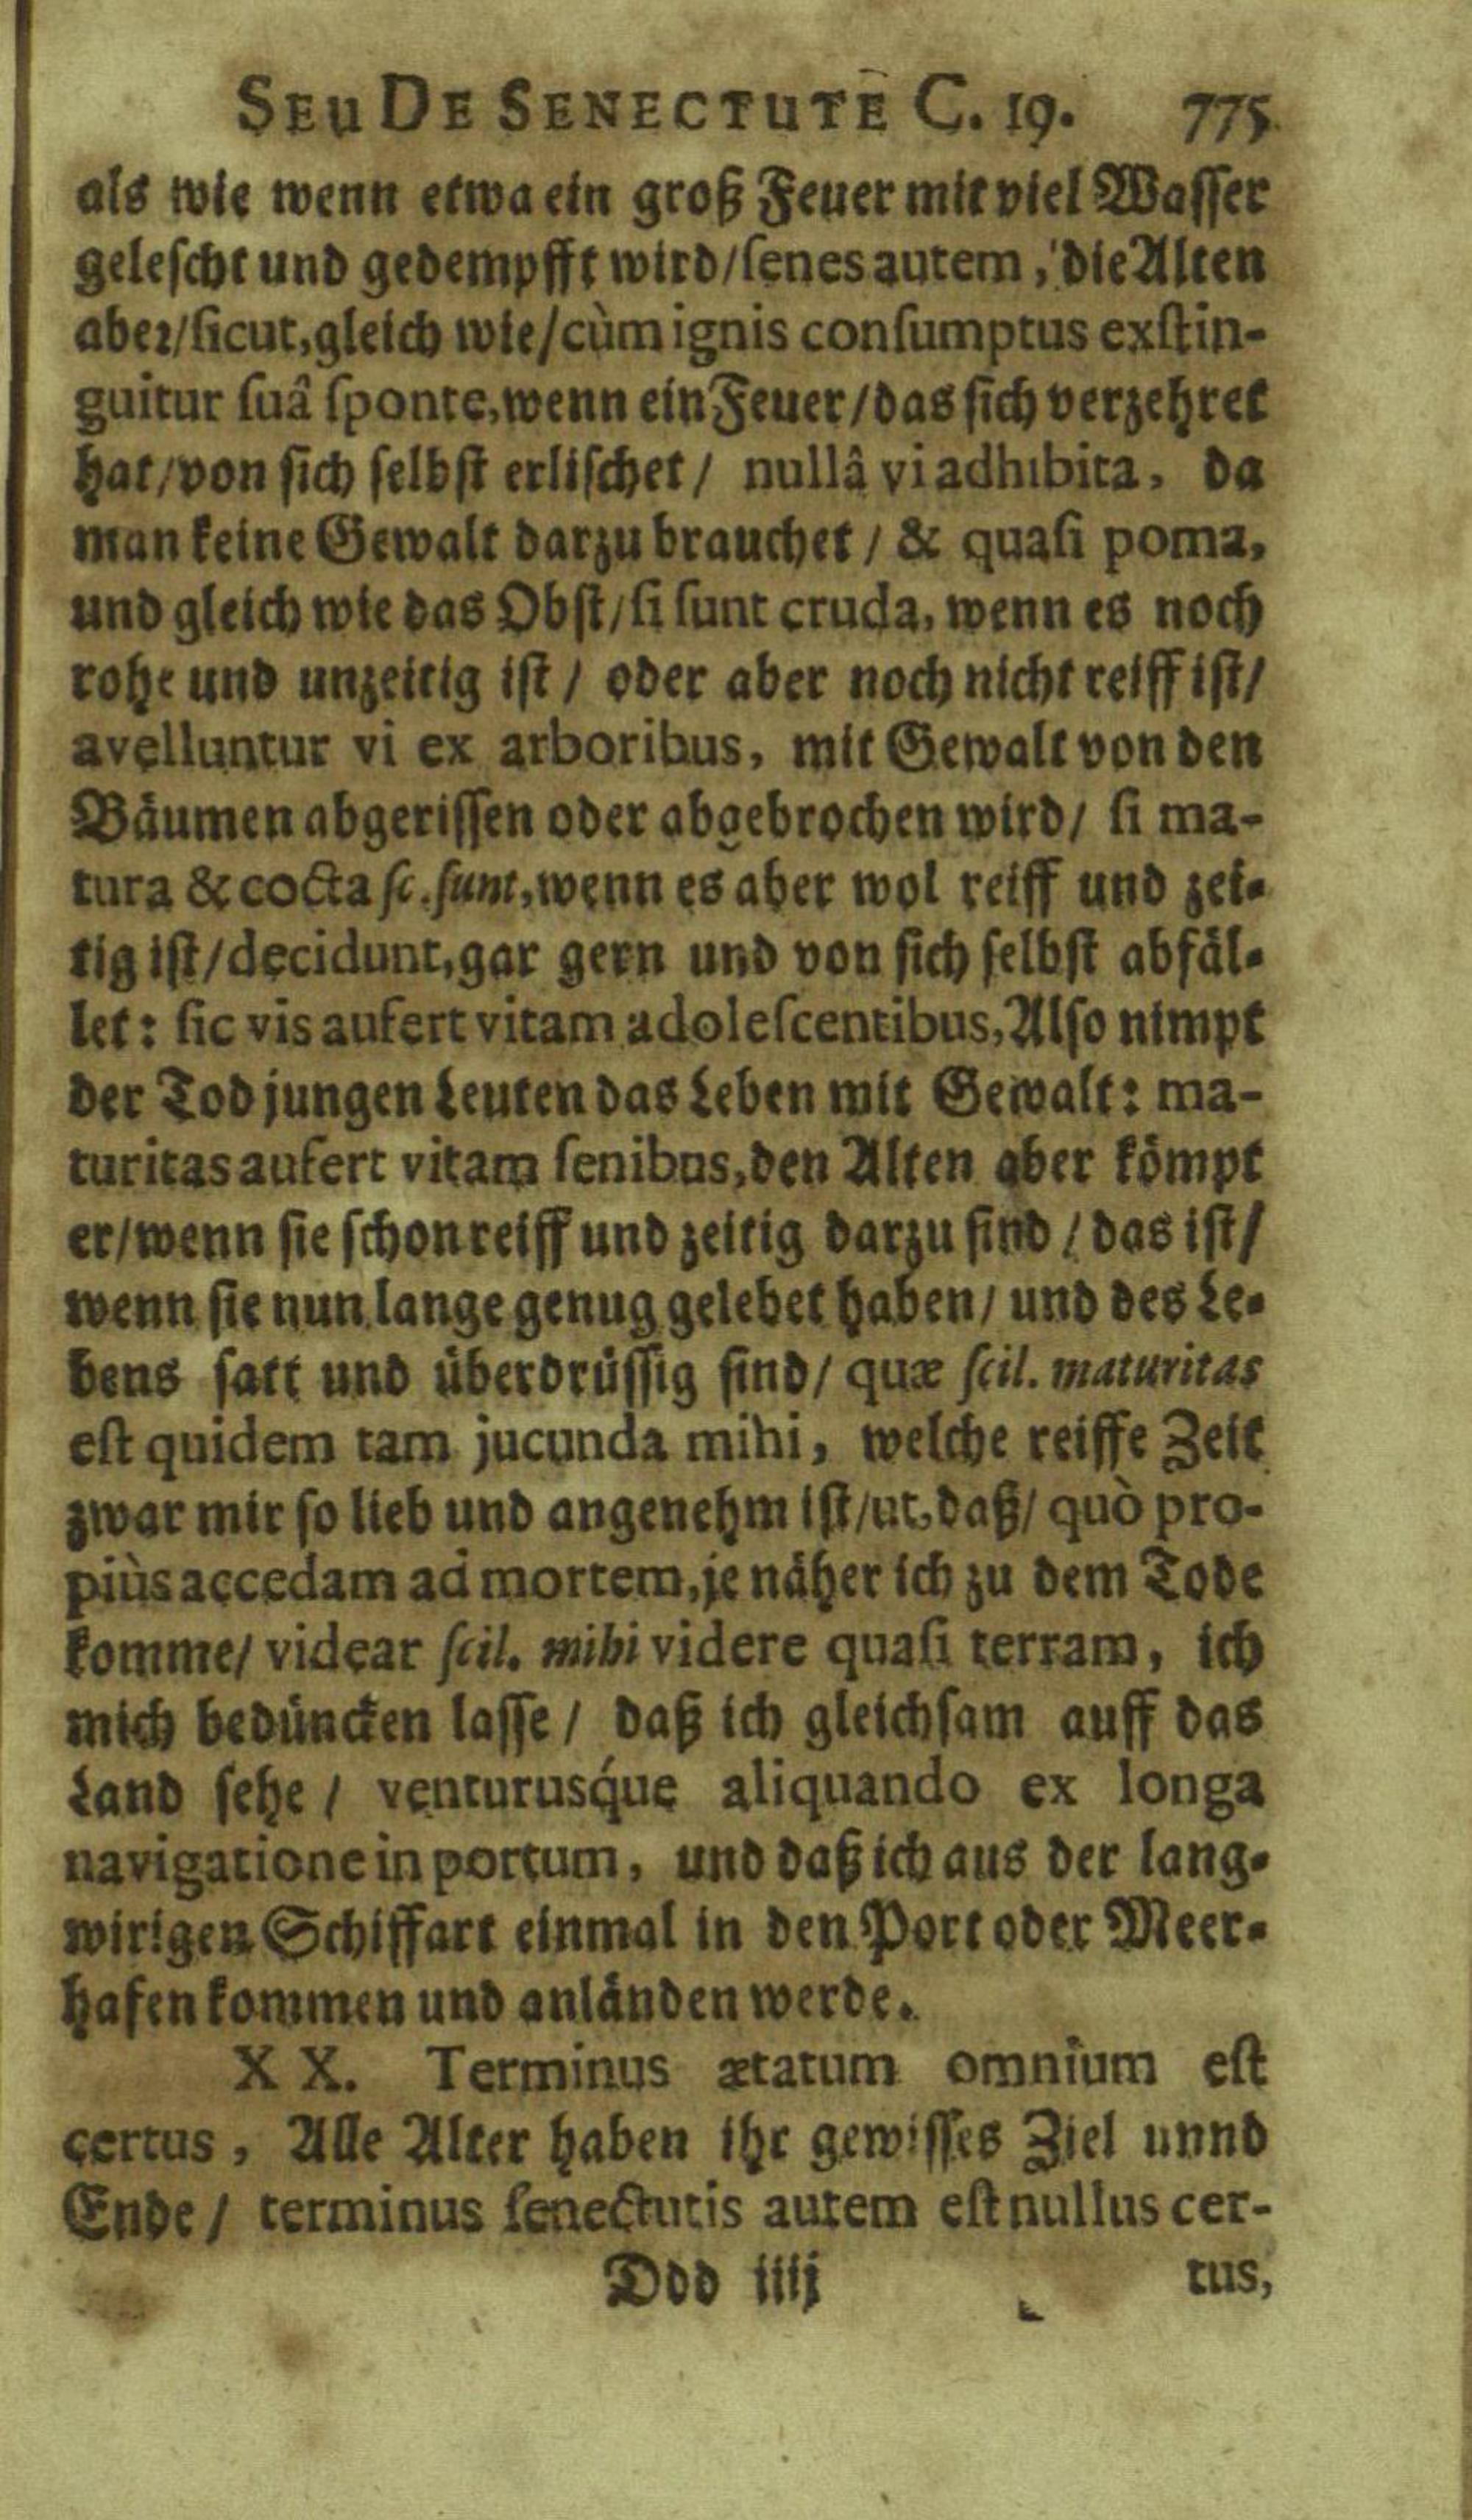 SEU DE SENECTUTE C. 19. 775
als wie wenn etwa ein groß Feuer mit viel Wasser
gelescht und gedempfft wird/ſenes autem, die Alten
aber/ſicut, gleich wie/cùm ignis conſumptus exſtin-
guitur ſuâ ſponte, wenn ein Feuer/das ſich verzehret
hat/von ſich ſelbſt erliſchet/ nullâ vi adhibita, da
man keine Gewalt darzu brauchet/ & quaſi poma,
und gleich wie das Obſt/ſi ſunt cruda, wenn es noch
rohe und unzeitig iſt/ oder aber noch nicht reiff iſt/
avelluntur vi ex arboribus, mit Gewalt von den
Bäumen abgeriſſen oder abgebrochen wird/ ſi ma-
tura & cocta ſc. ſunt, wenn es aber wol reiff und zei-
tig iſt/decidunt, gar gern und von ſich ſelbſt abfäl-
let: ſic vis aufert vitam adoleſcentibus, Alſo nimpt
der Tod jungen Leuten das Leben mit Gewalt: ma-
turitas aufert vitam ſenibus, den Alten aber kömpt
er/wenn ſie ſchon reiff und zeitig darzu ſind/das iſt/
wenn ſie nun lange genug gelebet haben/ und des Le-
bens ſatt und überdrüſſig ſind/ quæ ſcil. maturitas
eſt quidem tam jucunda mihi, welche reiffe Zeit
zwar mir ſo lieb und angenehm iſt/ut, daß/ quò pro-
piùs accedam ad mortem, je näher ich zu dem Tode
komme/ videar ſcil. mihi videre quaſi terram, ich
mich bedüncken laſſe/ daß ich gleichſam auff das
Land ſehe/ venturusq́ue aliquando ex longa
navigatione in portum, und daß ich aus der lang-
wirigen Schiffart einmal in den Port oder Meer-
hafen kommen und anländen werde.
XX. Terminus ætatum omnium eſt
certus, Alle Alter haben ihr gewiſſes Ziel unnd
Ende/ terminus ſenectutis autem eſt nullus cer-
Ddd iiij tus,